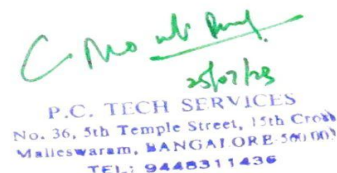 25/07/23
P.C. TECH SERVICES
No. 36, 5th Temple Street, 15th Cross
Malleswaram, BANGALORE-560 003
TEL: 9448311436